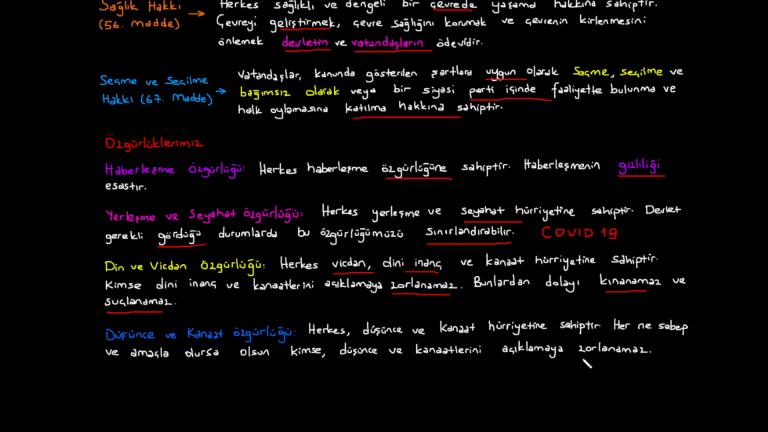 Sağlık Hakkı → Herkes sağlıklı ve dengeli bir çevrede yaşama hakkına sahiptir.
(56. Madde) Çevreyi geliştirmek, çevre sağlığını korumak ve çevrenin kirlenmesini
önlemek devletin ve vatandaşların ödevidir.
Seçme ve Seçilme Vatandaşlar, kanunda gösterilen şartlara uygun olarak seçme, seçilme ve
Hakkı (67. Madde) → bağımsız olarak veya bir siyasi parti içinde faaliyette bulunma ve
halk oylamasına katılma hakkına sahiptir.
Özgürlüklerimiz
Haberleşme Özgürlüğü: Herkes haberleşme özgürlüğüne sahiptir. Haberleşmenin gizliliği
esastır.
Yerleşme ve Seyahat Özgürlüğü: Herkes yerleşme ve seyahat hürriyetine sahiptir. Devlet
gerekli gördüğü durumlarda bu özgürlüğümüzü sınırlandırabilir. COVID 19
Din ve Vicdan Özgürlüğü: Herkes vicdan, dini inanç ve kanaat hürriyetine sahiptir.
Kimse dini inanç ve kanaatlerini açıklamaya zorlanamaz. Bunlardan dolayı kınanamaz ve
suçlanamaz.
Düşünce ve Kanaat özgürlüğü: Herkes, düşünce ve Kanaat hürriyetine sahiptir Her ne sebep
ve amaçla olursa olsun kimse, düşünce ve kanaatlerini açıklamaya zorlanamaz.